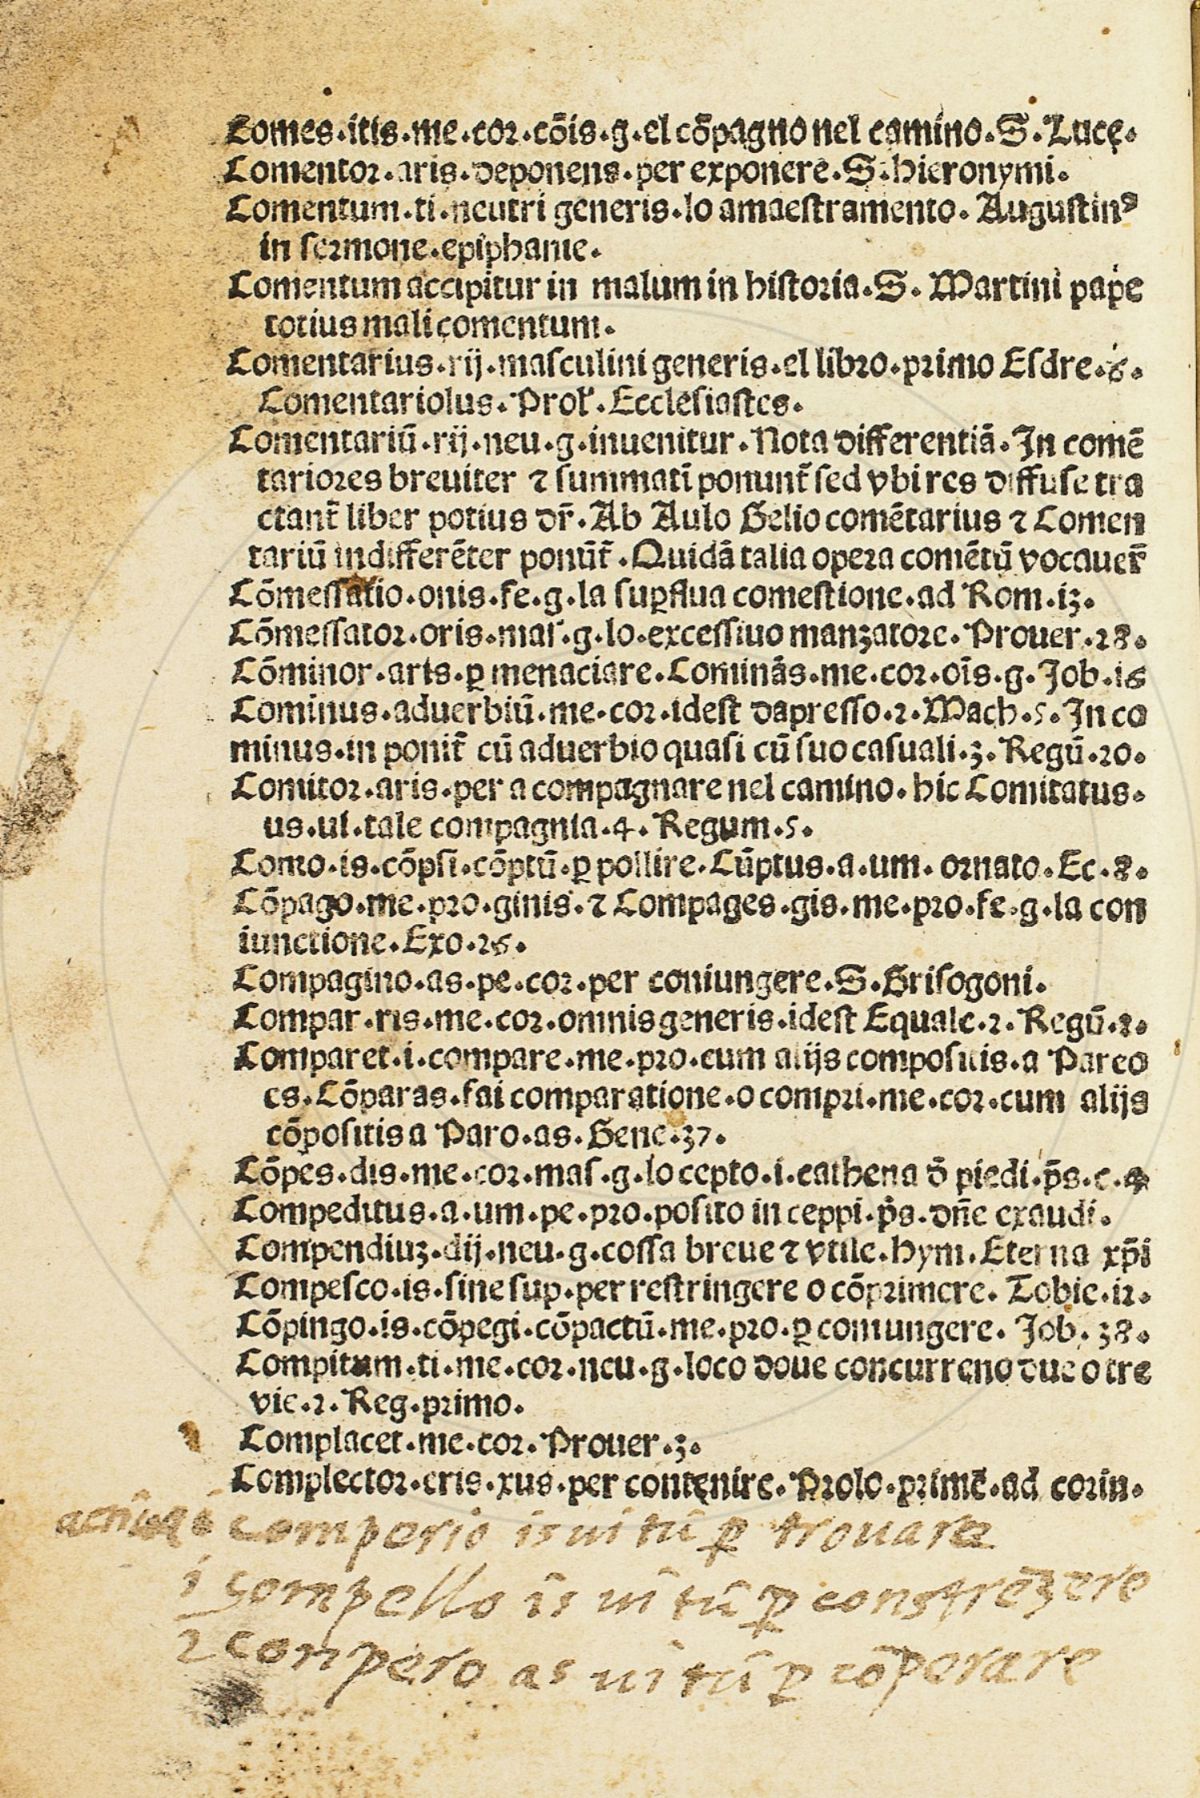 Comes.itis.me.cor.cōis.g.el cōpagno nel camino.S.Lucę.
Comentor.aris.deponens.per exponere.S.hieronymi.
Comentum.ti.neutri generis.lo amaestramento.Augustinꝰ
in sermone.epiphanie.
Comentum accipitur in malum in historia.S.Martini pape
totius mali comentum.
Comentarius.rij.masculini generis.el libro.primo Esdre.6.
Comentariolus.Prol'.Ecclesiastes.
Comentariū.rij.neu.g.inuenitur.Nota differentiā.In comē
tariores breuiter ⁊ summati ponunt̄ sed vbi res diffuse tra
ctant̄ liber potius dr̄.Ab Aulo Gelio comētarius ⁊ Comen
tariū indifferēter ponūt̄.Quidā talia opera comētū vocauer̄
Cōmessatio.onis.fe.g.la suꝑflua comestione.ad Rom.13.
Cōmessator.oris.mas.g.lo.excessiuo manzatore.Prouer.28.
Cōminor.aris.ꝑ menaciare.Cominās.me.cor.oīs.g.Job.16
Cominus.aduerbiū.me.cor.idest dapresso.2.Mach.5.In co
minus.in ponit̄ cū aduerbio quasi cū suo casuali.3.Regū.20.
Comitor.aris.per a compagnare nel camino.hic Comitatus.
us.ui.tale compagnia.4.Regum.5.
Como.is.cōpsi.cōptū.ꝑ pollire.Cūptus.a.um.ornato.Ec.8.
Cōpago.me.pro.ginis.⁊ Compages.gis.me.pro.fe.g.la con
iunctione.Exo.26.
Compagino.as.pe.cor.per coniungere.S.Grisogoni.
Compar.ris.me.cor.omnis generis.idest Equale.2.Regū.2.
Comparet.i.compare.me.pro.cum alijs compositis.a Pareo
es.Cōparas.fai comparatione.o compri.me.cor.cum alijs
cōpositis a Paro.as.Gene.37.
Cōpes.dis.me.cor.mas.g.lo cepto.i.cathena d̄ piedi.p̄s.c.4
Compeditus.a.um.pe.pro.posito in ceppi.p̄s.dn̄e exaudi.
Compendiuz.dij.neu.g.cossa breue ⁊ vtile.hym.Eterna xp̄i
Compesco.is.sine sup.per restringere o cōprimere.Tobie.12.
Cōpingo.is.cōpegi.cōpactū.me.pro.ꝑ comungere.Job.38.
Compitum.ti.me.cor.neu.g.loco doue concurreno due o tre
vie.2.Reg.primo.
Complacet.me.cor.Prouer.3.
Complector.eris.xus.per contęnire.Prolo.prime.ad corin.
comperio is ui tū ꝑ trouare
1 compello is ui tū ꝑ constrēzere
2 conpero as ui tū ꝑ cōperare